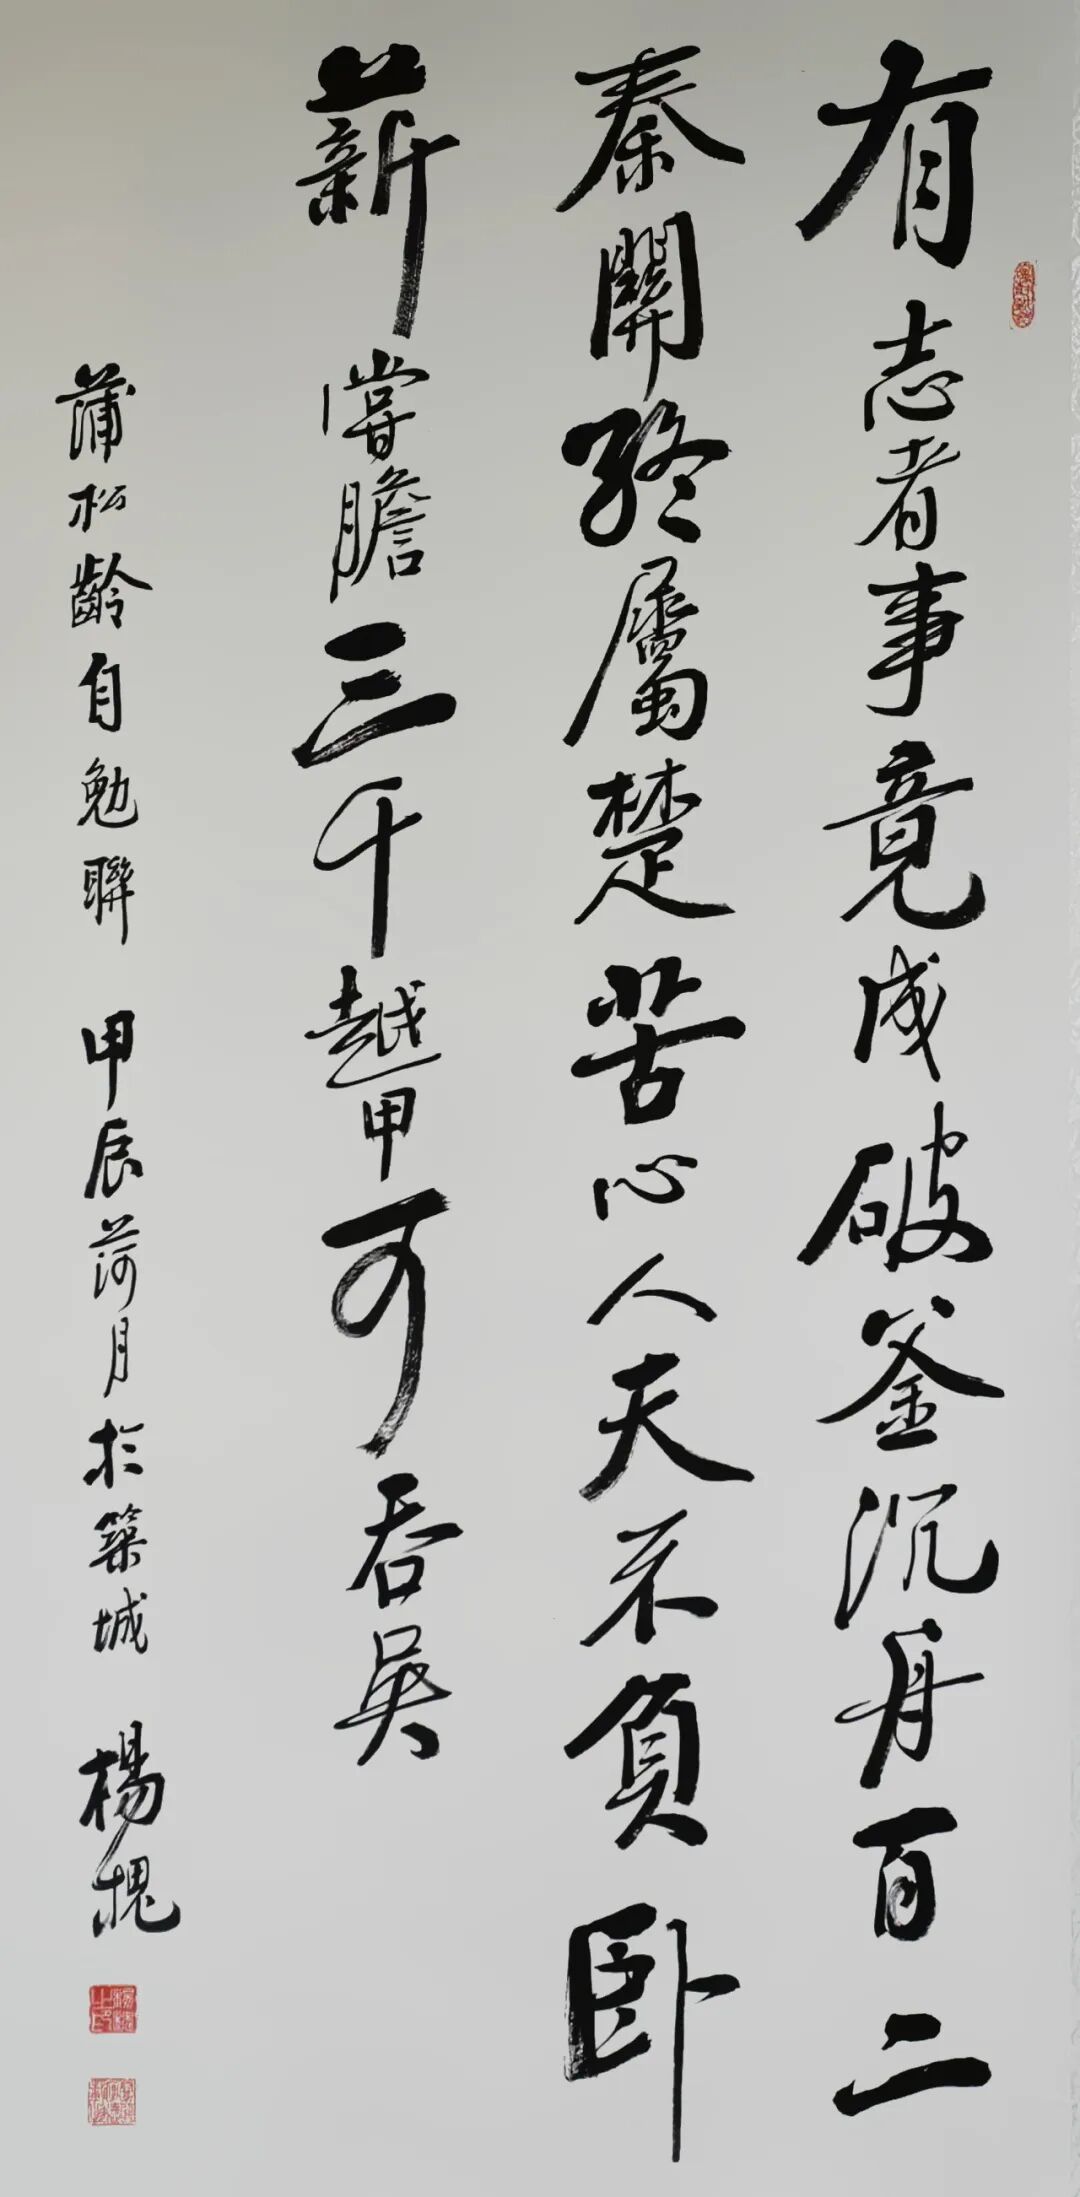 有志者事竟成破釜沉舟百二
秦關終屬楚苦心人天不負卧
薪嘗膽三千越甲可吞吳
蒲松齡自勉聯 甲辰荷月於築城 楊槐